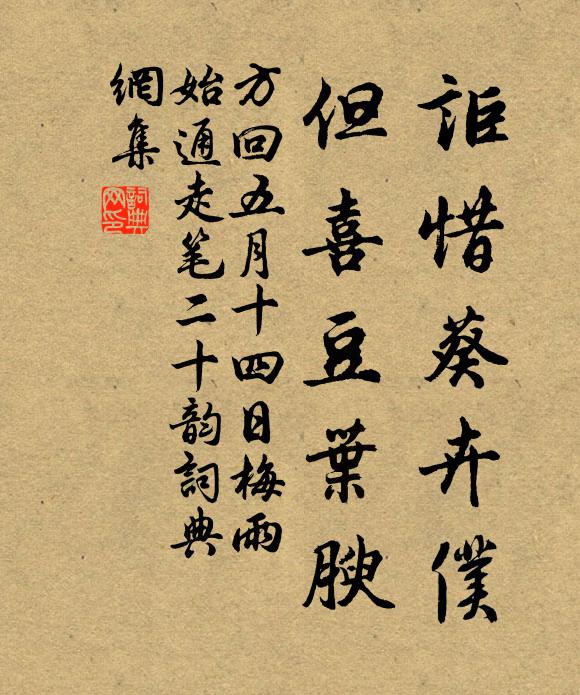 詎惜葵卉僕
但喜豆葉腴
方回五月十四日梅雨
始通走笔二十韵詞典
網集
詞典网印